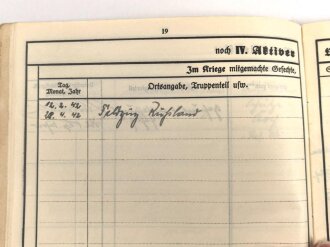 19
noch IV. Aktiver
Im Kriege mitgemachte Gefechte,
Tag, Ortsangabe, Truppenteil usw.
Monat, Jahr
12. 2. 42 Feldzug Rußland
28. 4. 42